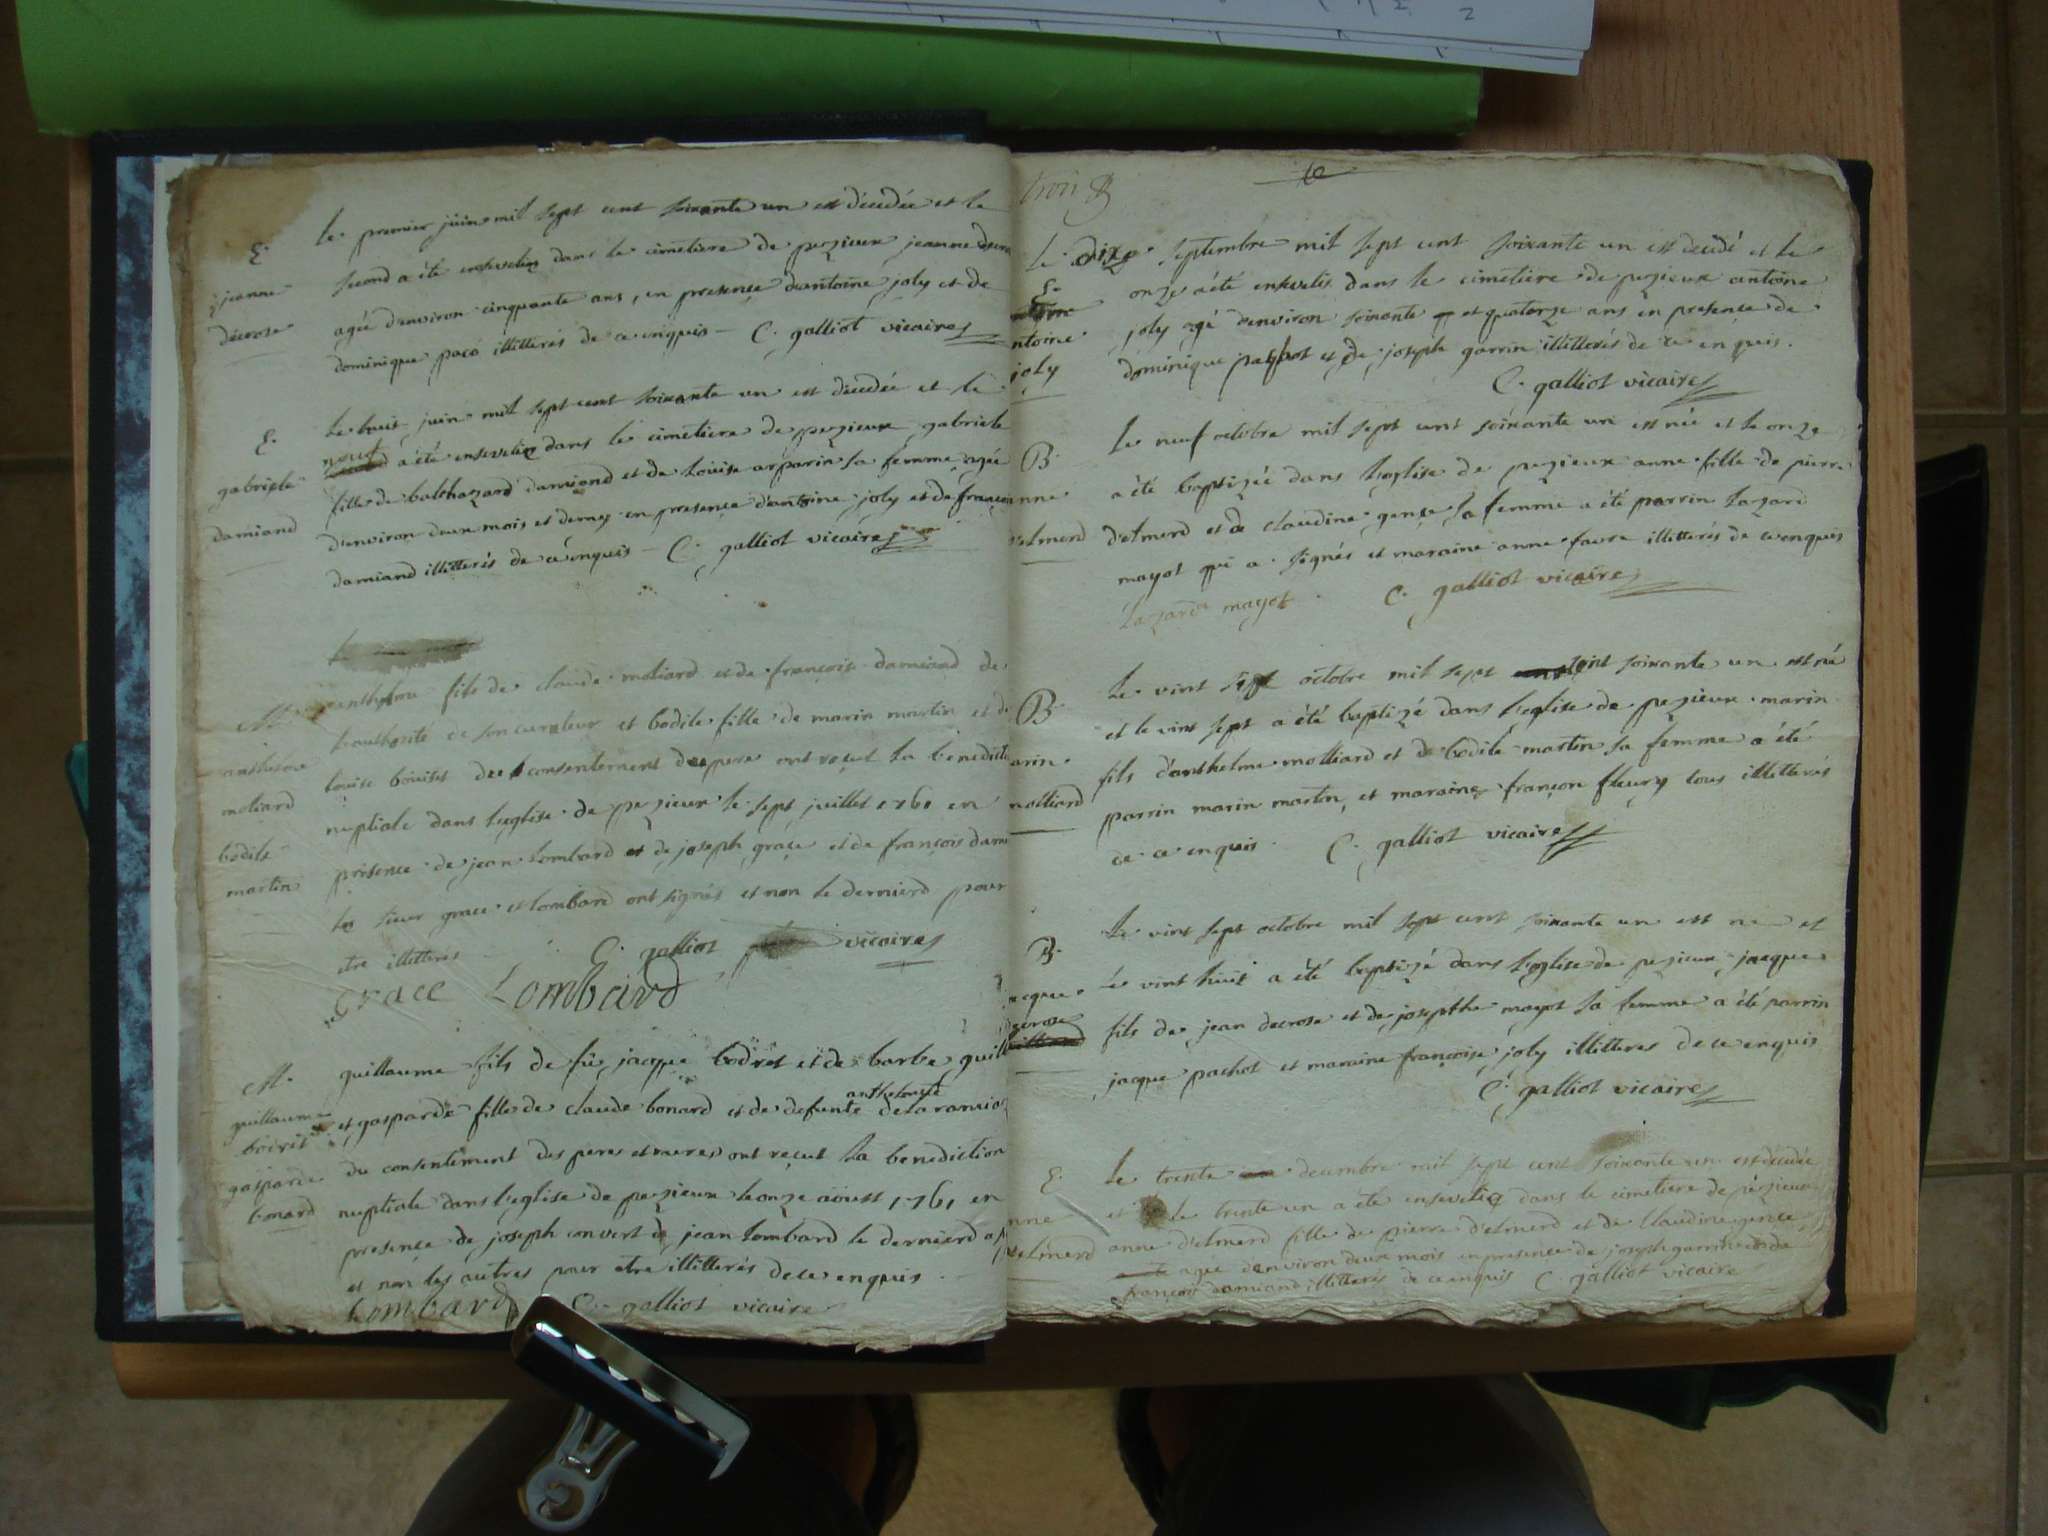 E.
jeanne
decrose
le premier juin mil sept cent soixante un est décédée et le
second a été ensevelie dans le cimetiere de pezieux jeanne
agée d'environ cinquante ans, en presence d'antoine joly et de
dominique illitterés de ce enquis C. galliot vicaire
E.
gabriele
damiand
Le huit juin mil sept cent soixante un est décédée et le
neuf a été ensevelie dans le cimetiere de pezieux gabriele
fille de balthazard damiand et de Louise arparin sa femme agée
d'environ deux mois et demy en presence d'antoine joly et de françois
damiand illitterés de ce enquis C. galliot vicaire
M.
anthelme
moliard
bodile
martin
anthelme fils de claude moliard et de françoise damiand de
l'authorité de son curateur et bodile fille de marin martin et de
louise du consentement du pere ont reçut la benedict
nuptiale dans l'eglise de pezieux le sept juillet 1761 en
présence de jean lombard et de joseph grace et de françois dami
les sieur grace et lombard ont signés et non le dernierd pour
etre illitterés C. galliot vicaire
grace Lombard
M.
guillaume
boirit
gasparde
bonard
guillaume fils de fü jacque et de barbe guill
anthelmette
et gasparde fille de claude bonard et de defunte
du consentement des peres et meres ont reçut la benediction
nuptiale dans l'eglise de pezieux le onze aoust 1761 en
presence de joseph convert de jean lombard le dernierd a
et non les autres pour etre illitterés de ce enquis
lombard C. galliot vicaire
troi
Le dixe septembre mil sept cent soixante un est decedé et le
E.
ntoine
joly
onze a été ensevelis dans le cimetiere de pezieux antoine
joly agé d'environ soixante et quatorze ans en presence de
dominique pachot et de joseph garrin illitterés de ce enquis.
C. galliot vicaire
B.
nne
d'elmerd
Le neuf octobre mil sept cent soixante un est née et le onze
a été baptizée dans l'eglise de pezieux anne fille de pierre
d'elmerd et de claudine gence sa femme a été parrin lazard
mayot qui a signés et maraine anne favre illitterés de ce enquis
Lazard mayot C. galliot vicaire
B.
arin
molliard
Le vint sept octobre mil sept cent soixante un est né
et le vint sept a été baptizé dans l'eglise de pezieux marin
fils d'anthelme molliard et de bodile martin sa femme a été
parrin marin martin et maraine françon fleury tous illitterés
de ce enquis C. galliot vicaire
B.
acque
decrose
Le vint sept octobre mil sept cent soixante un est né et
le vint huit a été baptizé dans l'eglise de pezieux jacque
fils de jean decrose et de josepthe mayot sa femme a été parrin
jacque pachot et maraine françoise joly illitteres de ce enquis
C. galliot vicaire
E.
nne
elmerd
Le trente decembre mil sept cent soixante un est décédée
et le trente un a été ensevelie dans le cimetiere de pézieux
anne d'elmerd fille de pierre d'elmerd et de Claudine gence
agée d'environ deux mois en presence de joseph garrin et de
françois damiand illitterés de ce enquis C. galliot vicaire